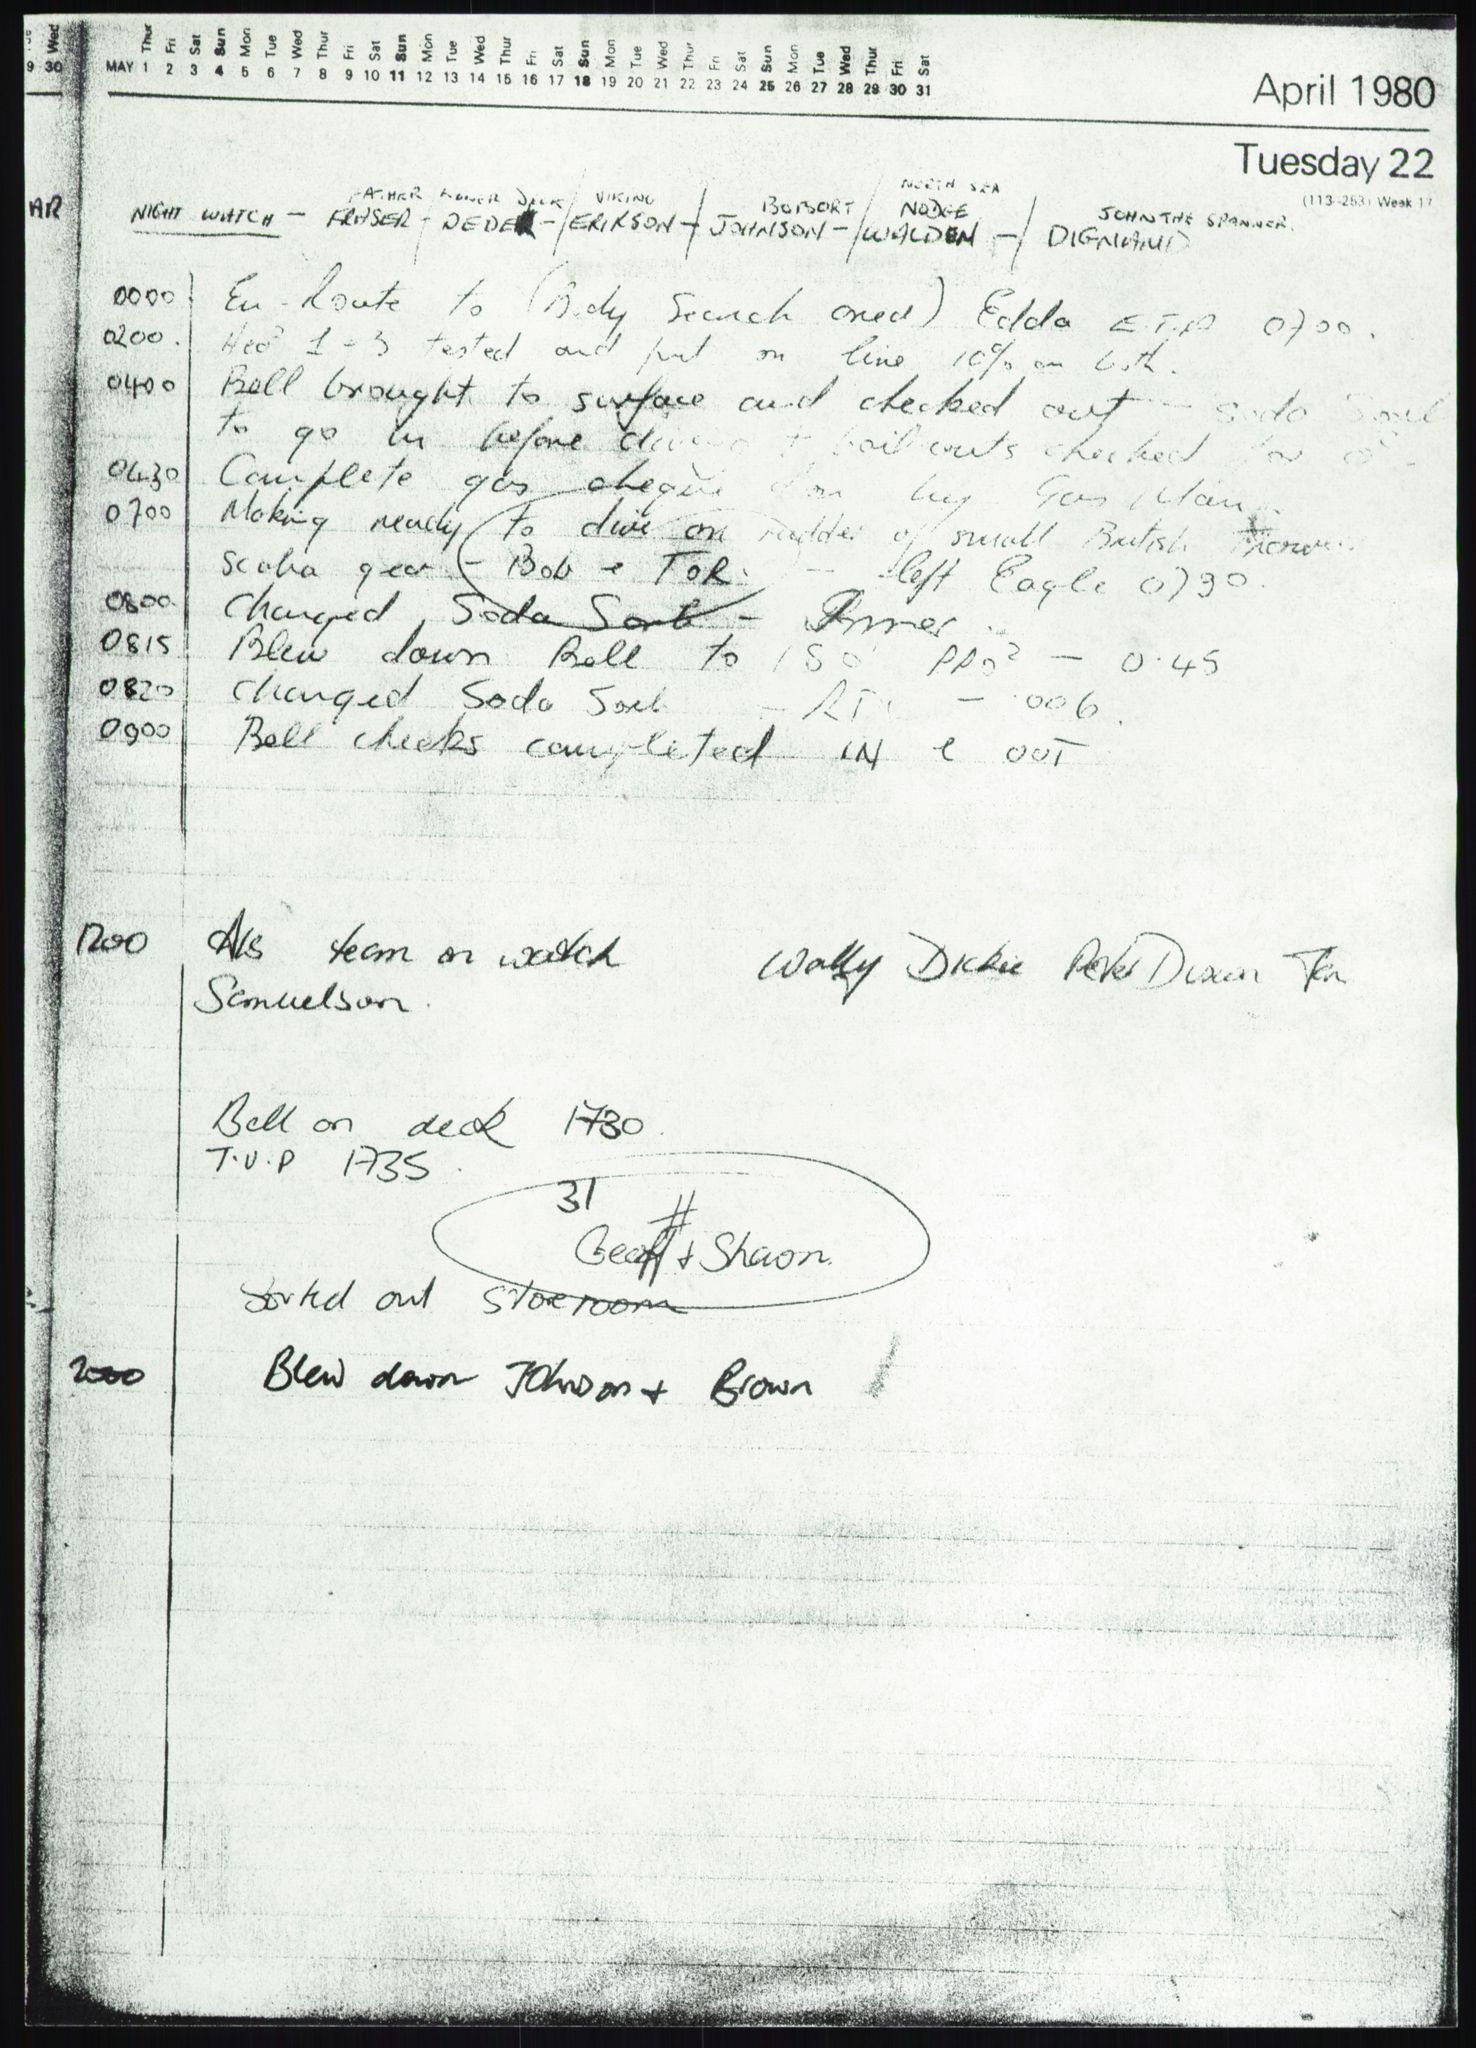 Wed Thur Fri Sat Sun Mon Tue Wed Thur Fri Sat Sun Mon Tue Wed Thur Fri Sat Sun Mon Tue Wed Thur Fri Sat Sun Mon Tue Wed Thur Fri Sat
9 30 MAY 1 2 3 4 5 6 7 8 9 10 11 12 13 14 15 16 17 18 19 20 21 22 23 24 25 26 27 28 29 30 31
April 1980
Tuesday 22
(113-253) Week 17
FATHER DECK VIKING BOBORT NORTH SEA NODGE JOHN THE SPANNER.
AR NIGHT WATCH - FRASER - DEDEK - / ERIKSON - / JOHNSON - / WALDEN - / DIGNAM
0000 En-Route to (Body Search ones) Edda E.T.A 0700.
0200. 1-3 tested and put on line 10% on both.
0400 Bell brought to surface and checked out - Soda Sorb
to go in before + bail outs checked for
0430 Complete gas by Gas Man.
0700 Making ready to dive on rudder of small British
scuba gear - Bob & TOR. - left Eagle 0730.
0800 Changed Soda Sorb -
0815 Blew down Bell to 150' PPO² - 0.45
0820 Changed Soda Sorb - - .006.
0900 Bell checks completed IN & OUT
1200 Als team on watch Wally Dickie Peter Tor
Samuelson.
Bell on deck 1730.
T.U.P 1735.
31
Geoff + Sharon.
Sorted out Storeroom
2000 Blew down Johnson + Brown